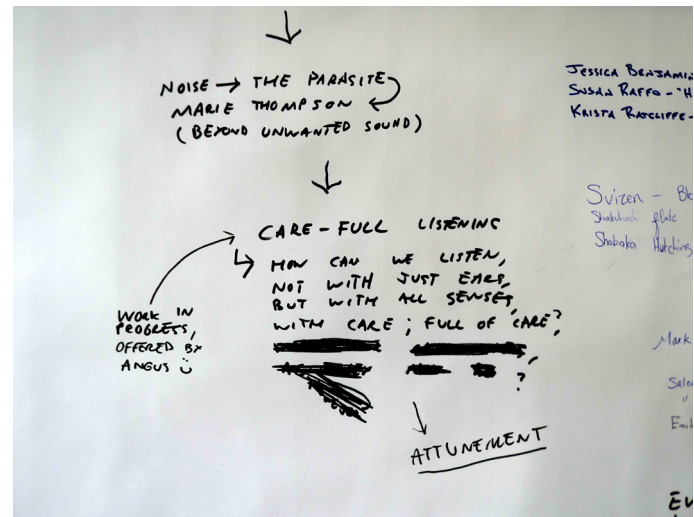 NOISE → THE PARASITE
MARIE THOMPSON
(BEYOND UNWANTED SOUND)
CARE-FULL LISTENING
HOW CAN WE LISTEN,
NOT WITH JUST EARS,
BUT WITH ALL SENSES,
WITH CARE; FULL OF CARE?
?
ATTUNEMENT
WORK IN
PROGRESS,
OFFERED BY
ANGUS
JESSICA BENJAMIN
SUSAN RAFFO - "H
KRISTA RATCLIFFE -
Svizen -
Shakuhachi flute
Shabaka Hutching
Mark
Emil